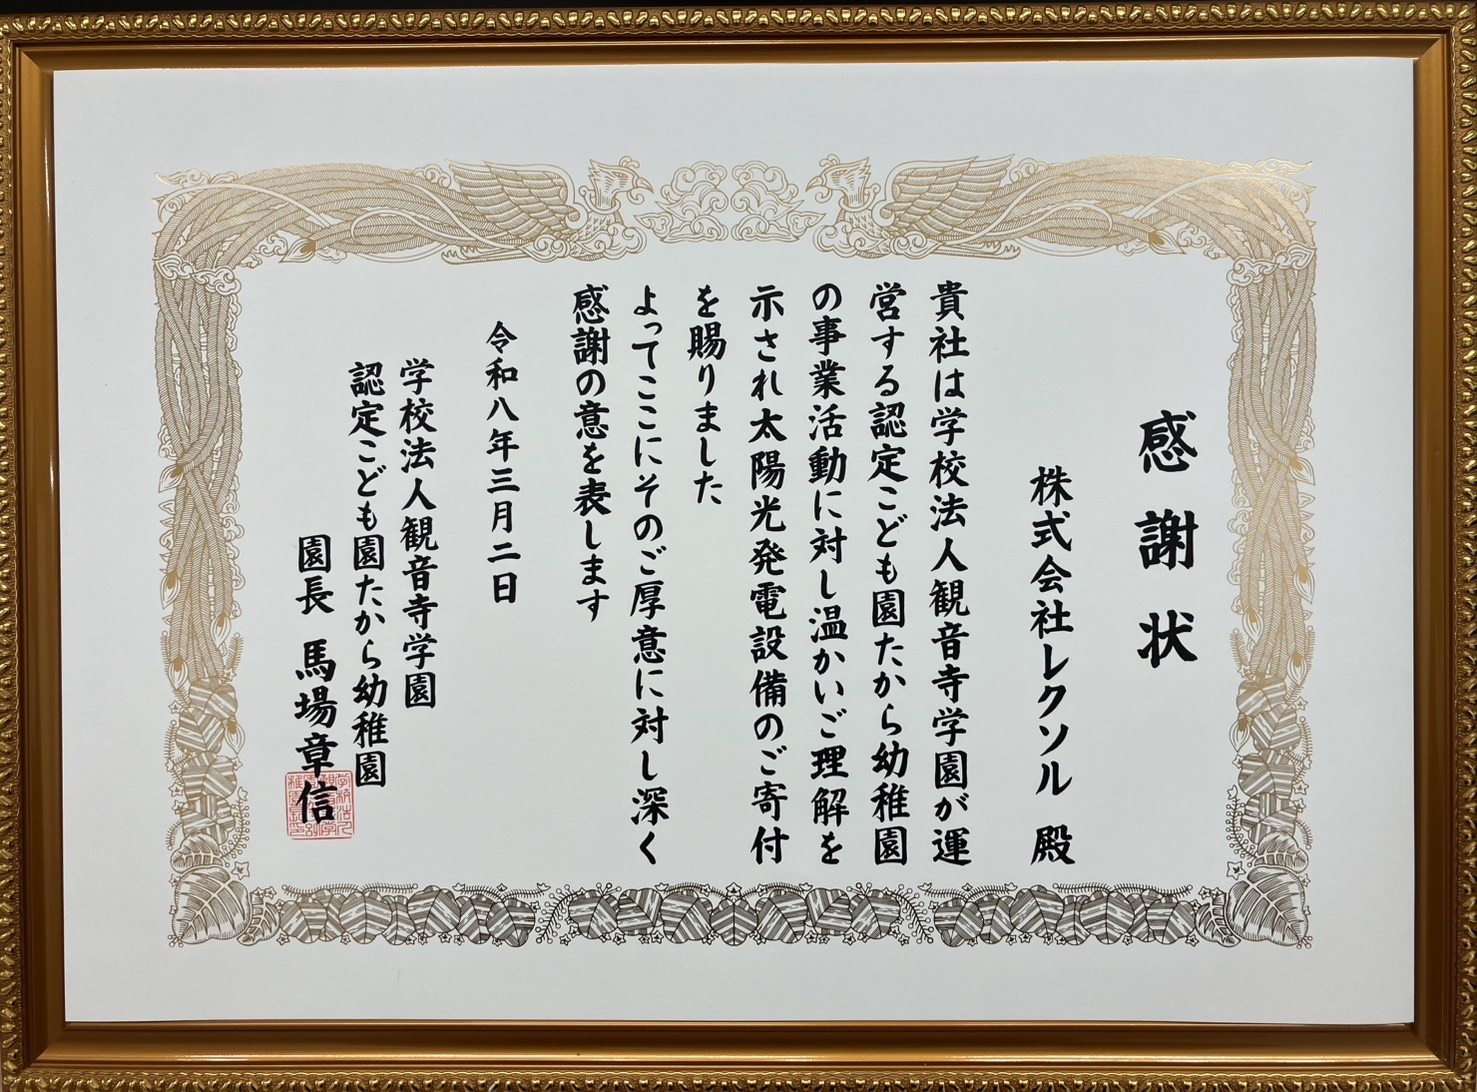 感謝状
株式会社レクソル 殿
貴社は学校法人観音寺学園が運
営する認定こども園たから幼稚園
の事業活動に対し温かいご理解を
示され太陽光発電設備のご寄付
を賜りました
よってここにそのご厚意に対し深く
感謝の意を表します
令和八年三月二日
学校法人観音寺学園
認定こども園たから幼稚園
園長 馬場章信